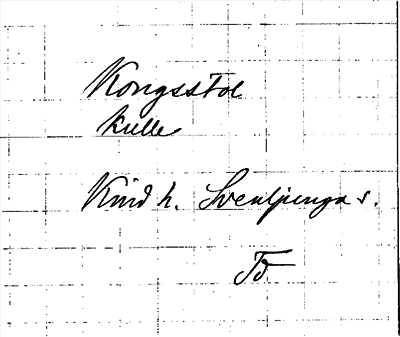 Kongsstol
kulle
Kind h. Svenljunga s.
TB